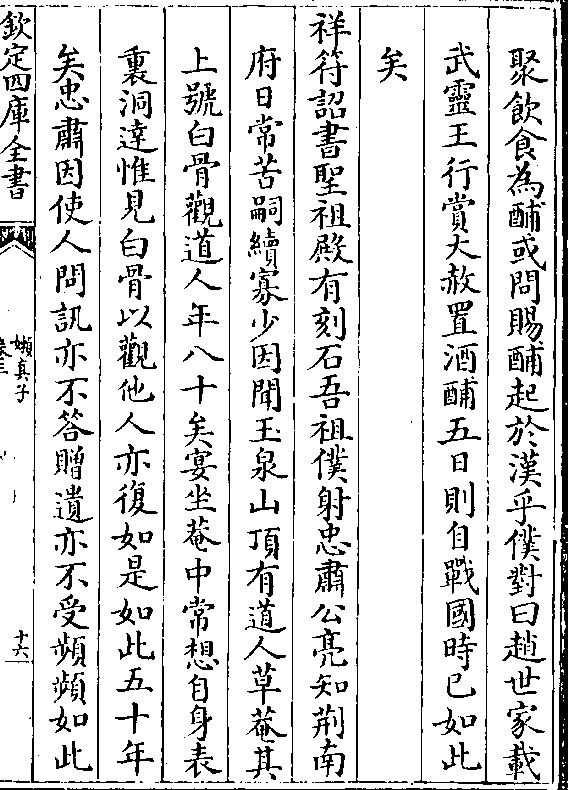 聚飲食為酺或問賜酺起於漢乎僕對曰趙世家載
武靈王行賞大赦置酒酺五日則自戰國時已如此
矣
祥符詔書聖祖殿有刻石吾祖僕射忠肅公亮知荆南
府日常苦嗣續寡少因聞玉泉山頂有道人草菴其
上號白骨觀道人年八十矣宴坐菴中常想自身表
裏洞達惟見白骨以觀他人亦復如是如此五十年
矣忠肅因使人問訊亦不答贈遺亦不受頻頻如此
欽定四庫全書
嬾真子
卷三
十六